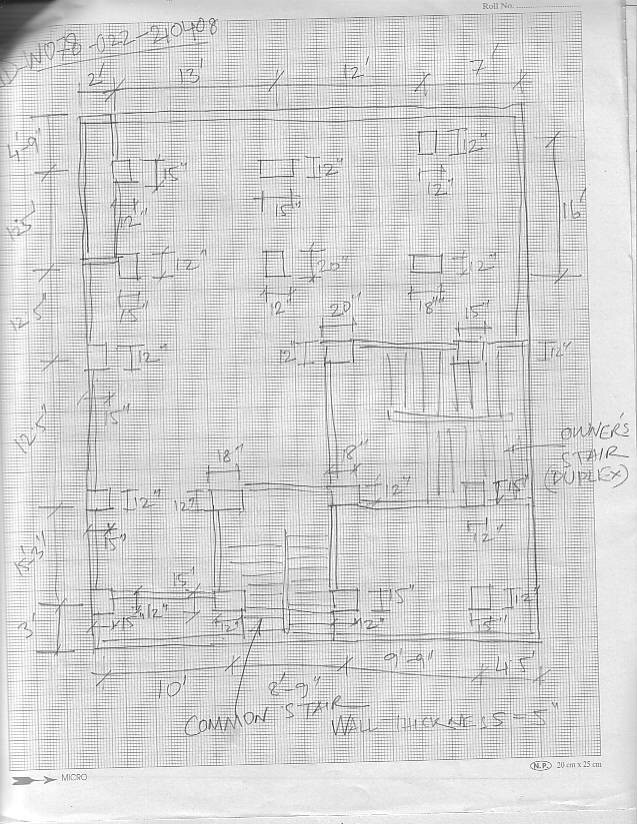 Roll No.
ID-W078-022-210408
2' 13' 12' 7'
4'-9"
15" 12" 12"
12" 15" 12"
16'
12.5'
12" 20" 12"
15" 12" 18"
12.5'
20" 15"
12" 12" 12"
15"
12.5'
OWNER'S
STAIR
(DUPLEX)
18" 18"
12" 12" 12" 15"
15" 12"
15'-3"
15"
12" 15" 12"
15" 12" 12" 15"
3'
10' 8'-9" 9'-9" 4.5'
COMMON STAIR
WALL THICKNESS = 5"
MICRO
N.P. 20 cm x 25 cm